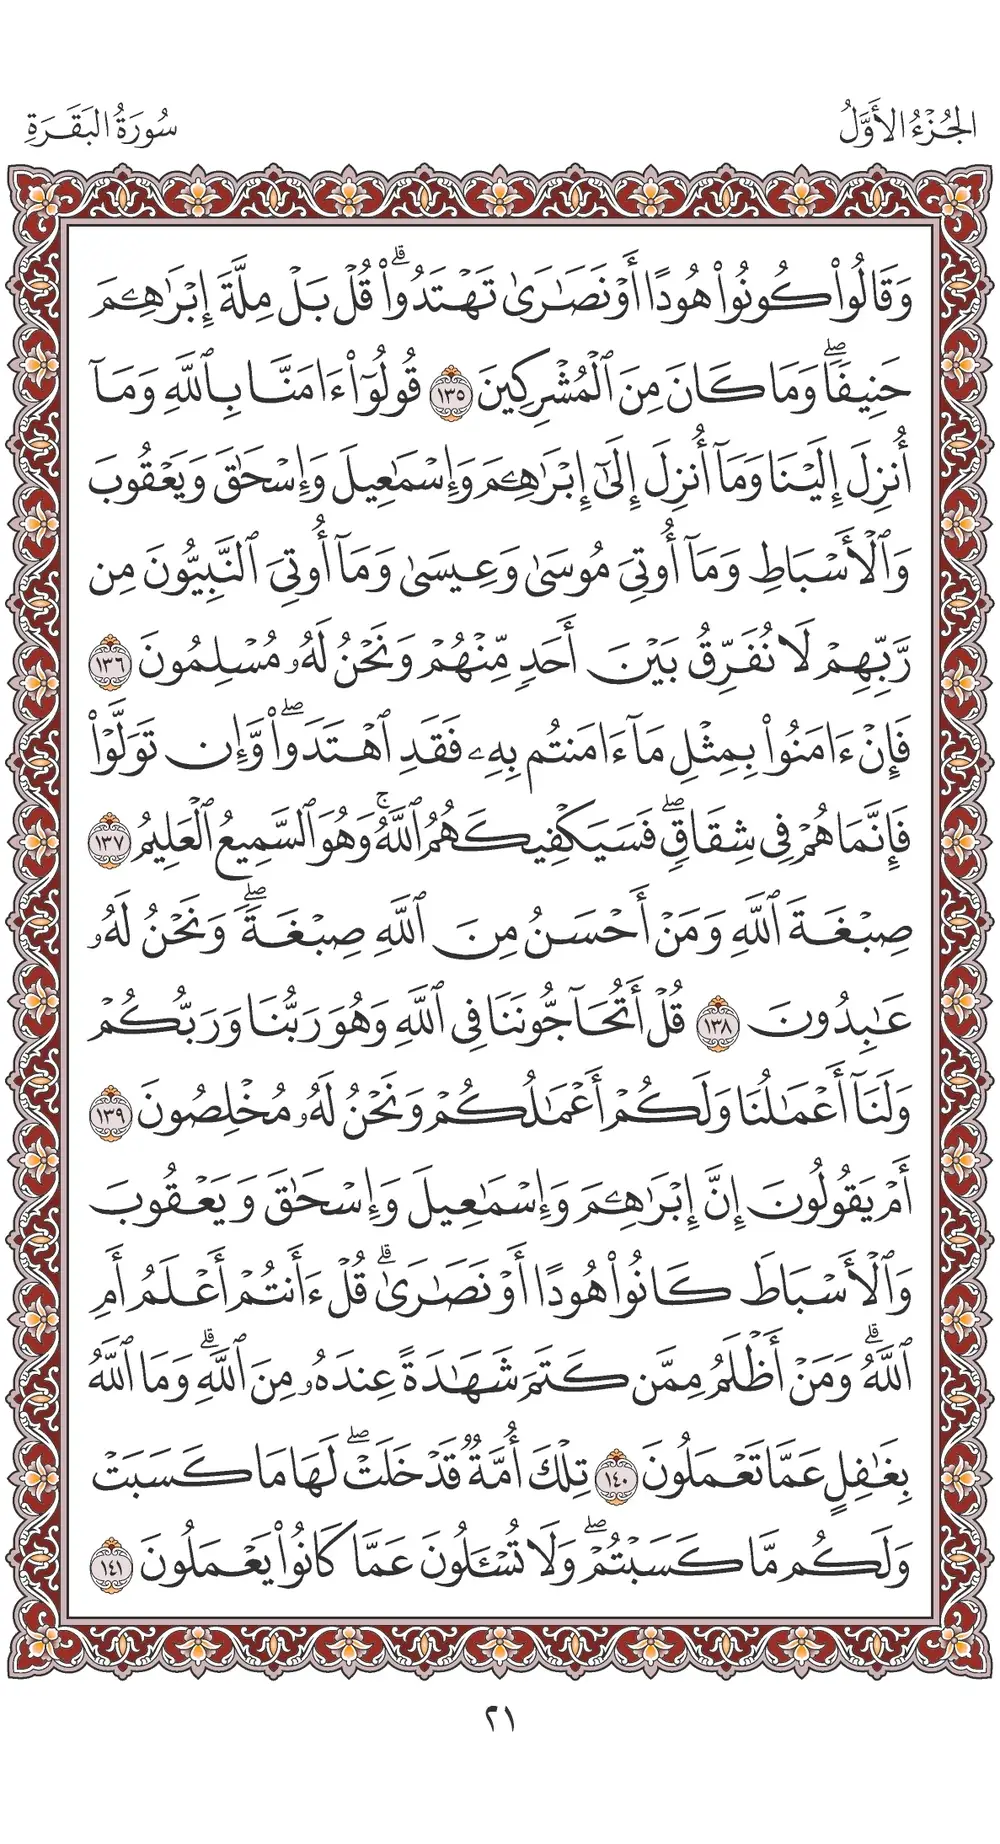 الجُزْءُ الأَوَّلُ
سُورَةُ البَقَرَةِ
وَقَالُوا۟ كُونُوا۟ هُودًا أَوْ نَصَـٰرَىٰ تَهْتَدُوا۟ ۗ قُلْ بَلْ مِلَّةَ إِبْرَٰهِـۧمَ
حَنِيفًا ۖ وَمَا كَانَ مِنَ ٱلْمُشْرِكِينَ ١٣٥ قُولُوٓا۟ ءَامَنَّا بِٱللَّهِ وَمَآ
أُنزِلَ إِلَيْنَا وَمَآ أُنزِلَ إِلَىٰٓ إِبْرَٰهِـۧمَ وَإِسْمَـٰعِيلَ وَإِسْحَـٰقَ وَيَعْقُوبَ
وَٱلْأَسْبَاطِ وَمَآ أُوتِىَ مُوسَىٰ وَعِيسَىٰ وَمَآ أُوتِىَ ٱلنَّبِيُّونَ مِن
رَّبِّهِمْ لَا نُفَرِّقُ بَيْنَ أَحَدٍ مِّنْهُمْ وَنَحْنُ لَهُۥ مُسْلِمُونَ ١٣٦
فَإِنْ ءَامَنُوا۟ بِمِثْلِ مَآ ءَامَنتُم بِهِۦ فَقَدِ ٱهْتَدَوا۟ ۖ وَّإِن تَوَلَّوْا۟
فَإِنَّمَا هُمْ فِى شِقَاقٍ ۖ فَسَيَكْفِيكَهُمُ ٱللَّهُ ۚ وَهُوَ ٱلسَّمِيعُ ٱلْعَلِيمُ ١٣٧
صِبْغَةَ ٱللَّهِ وَمَنْ أَحْسَنُ مِنَ ٱللَّهِ صِبْغَةً ۖ وَنَحْنُ لَهُۥ
عَـٰبِدُونَ ١٣٨ قُلْ أَتُحَآجُّونَنَا فِى ٱللَّهِ وَهُوَ رَبُّنَا وَرَبُّكُمْ
وَلَنَآ أَعْمَـٰلُنَا وَلَكُمْ أَعْمَـٰلُكُمْ وَنَحْنُ لَهُۥ مُخْلِصُونَ ١٣٩
أَمْ يَقُولُونَ إِنَّ إِبْرَٰهِـۧمَ وَإِسْمَـٰعِيلَ وَإِسْحَـٰقَ وَيَعْقُوبَ
وَٱلْأَسْبَاطَ كَانُوا۟ هُودًا أَوْ نَصَـٰرَىٰ ۗ قُلْ ءَأَنتُمْ أَعْلَمُ أَمِ
ٱللَّهُ ۗ وَمَنْ أَظْلَمُ مِمَّن كَتَمَ شَهَـٰدَةً عِندَهُۥ مِنَ ٱللَّهِ ۗ وَمَا ٱللَّهُ
بِغَـٰفِلٍ عَمَّا تَعْمَلُونَ ١٤٠ تِلْكَ أُمَّةٌ قَدْ خَلَتْ ۖ لَهَا مَا كَسَبَتْ
وَلَكُم مَّا كَسَبْتُمْ ۖ وَلَا تُسْـَٔلُونَ عَمَّا كَانُوا۟ يَعْمَلُونَ ١٤١
٢١